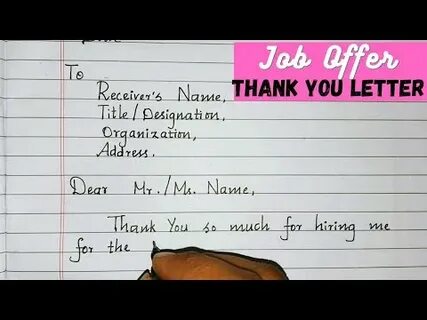 Job Offer
THANK YOU LETTER
To
Receiver's Name,
Title/Designation,
Organization,
Address.
Dear Mr./Ms. Name,
Thank You so much for hiring me
for the